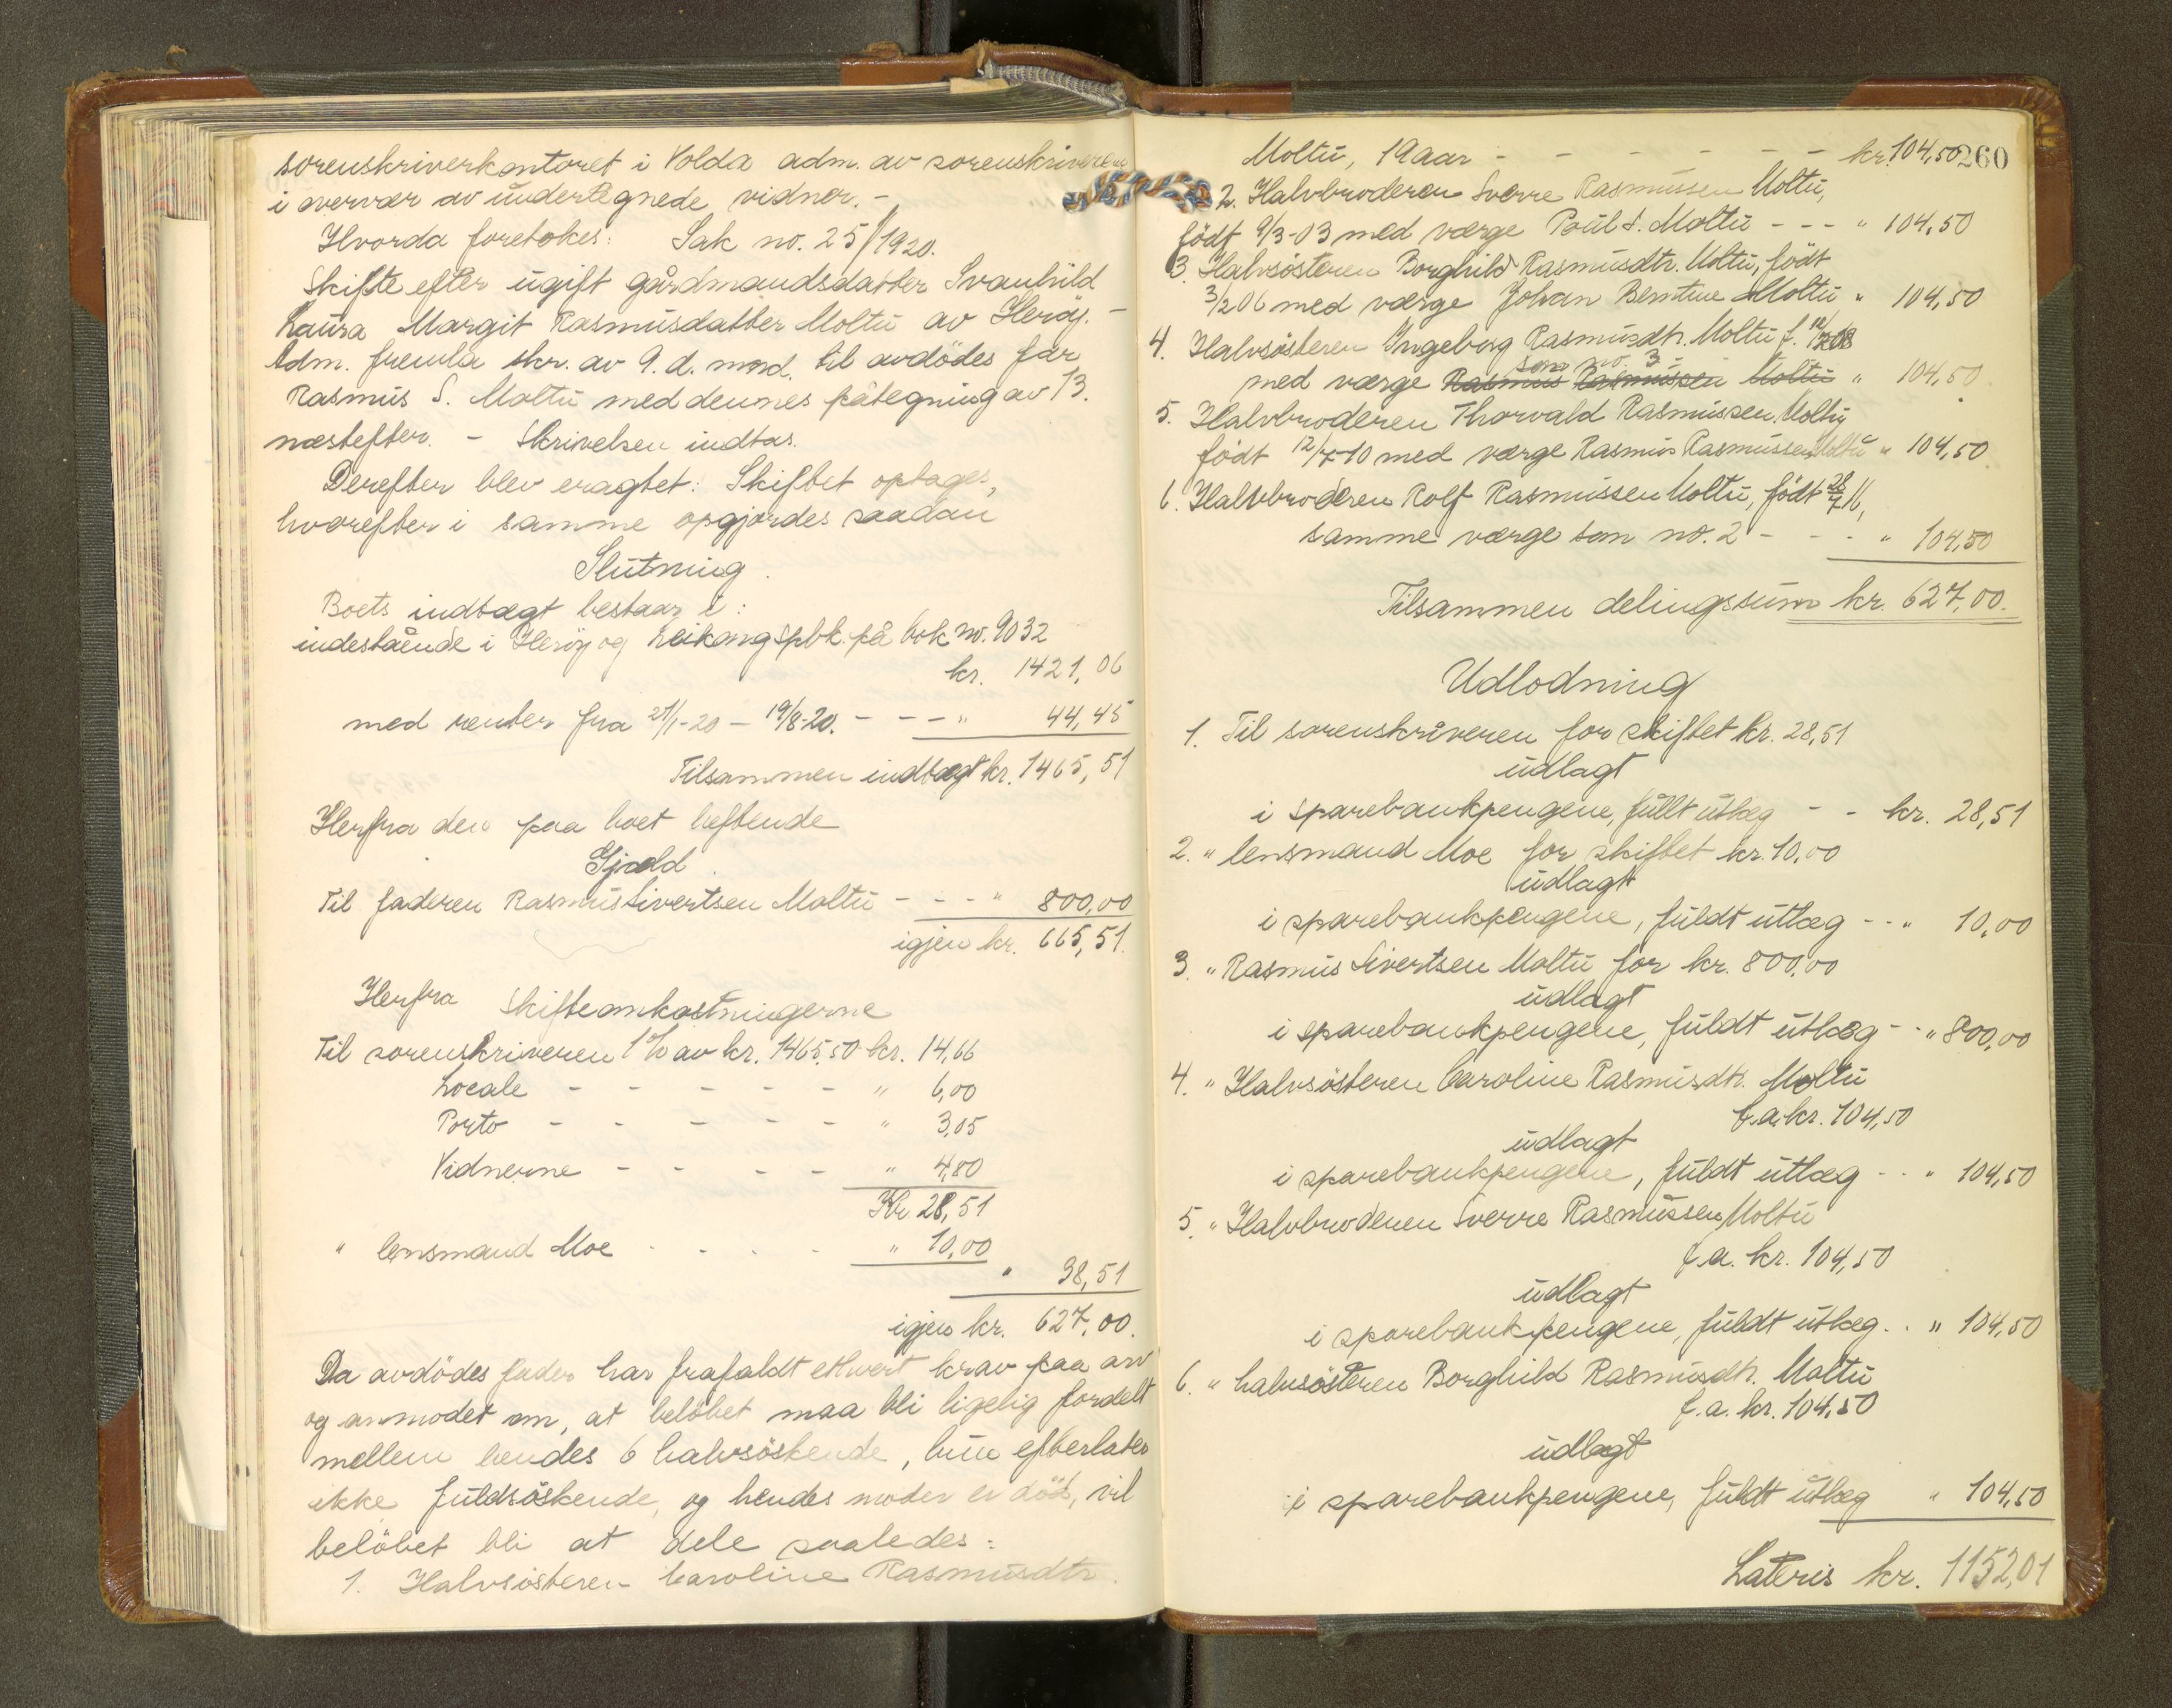 sorenskriverkontoret i Volda adm. av sorenskriveren
i overvær av undertegnede vidner. -
Hvorda foretokes: Sak no. 25/1920.
Skifte efter ugift gårdmandsdatter Svanhild
Laura Margit Rasmusdatter Moltu av Herøy. -
Adm. fremla skr. av 9. d. mnd. til avdödes far
Rasmus S. Moltu med dennes påtegning av 13.
næstefter. - Skrivelsen indtas.
Derefter blev eragtet: Skiftet optages,
hvorefter i samme opgjordes saadan
Slutning.
Boets indtægt bestaar i:
indestående i Herøy og Leikong Spbk. på bok no. 9032
kr. 1421,06
med renter fra 21/1-20 - 19/8-20. - - - " 44,45
Tilsammen indtægt kr. 1465,51
Herfra den paa boet heftende
Gjæld.
Til faderen Rasmus Sivertsen Moltu - - - " 800,00
igjen kr. 665,51.
Herfra Skifteomkostningerne
Til sorenskriveren 1% av kr. 1465,50 kr. 14,66
Locale - - - - - " 6,00
Porto - - - - - " 3,05
Vidnerne - - - - " 4,80
Kr 28,51
" lensmand Moe - - - - " 10,00
" 38,51
igjen kr. 627,00.
Da avdödes fader har frafaldt ethvert krav paa arv
og anmodet om, at belöbet maa bli ligelig fordelt
mellem hendes 6 halvsöskende, hun efterlater
ikke fuldsöskende, og hendes moder er död, vil
belöbet bli at dele saaledes:
1. Halvsösteren Caroline Rasmusdtr.
Moltu, 19 aar - - - - - - kr. 104,50
260
2. Halvbroderen Sverre Rasmussen Moltu,
födt 9/3-03 med værge Poul S. Moltu - - - " 104,50
3. Halvsösteren Borghild Rasmusdtr. Moltu, födt
3/2 06 med værge Johan Berntine Moltu " 104,50
4. Halvsösteren Ingeborg Rasmusdtr. Moltu f.
som no. 3
med værge Rasmus Rasmussen Moltu " 104,50
5. Halvbroderen Thorvald Rasmussen Moltu
födt 12/7-10 med værge Rasmus Rasmussen Moltu " 104,50
6. Halvbroderen Rolf Rasmussen Moltu, födt 28/7 16,
samme værge som no. 2 - - - " 104,50
Tilsammen delingssum kr. 627,00.
Udlodning
1. Til sorenskriveren for skiftet kr. 28,51
udlagt
i sparebankpengene, fullt utlæg - - kr. 28,51
2. " lensmand Moe for skiftet kr. 10,00
udlagt
i sparebankpengene, fuldt utlæg - - " 10,00
3. " Rasmus Sivertsen Moltu for kr. 800,00
udlagt
i sparebankpengene, fuldt utlæg - - " 800,00
4. " Halvsösteren Caroline Rasmusdtr. Moltu
f. a. kr. 104,50
udlagt
i sparebankpengene, fuldt utlæg - - " 104,50
5. " Halvbroderen Sverre Rasmussen Moltu
f. a. kr. 104,50
udlagt
i sparebankpengene, fuldt utlæg - - " 104,50
6. " halvsösteren Borghild Rasmusdtr. Moltu
f. a. kr. 104,50
udlagt
i sparebankpengene, fuldt utlæg " 104,50
Lateris kr. 1152,01